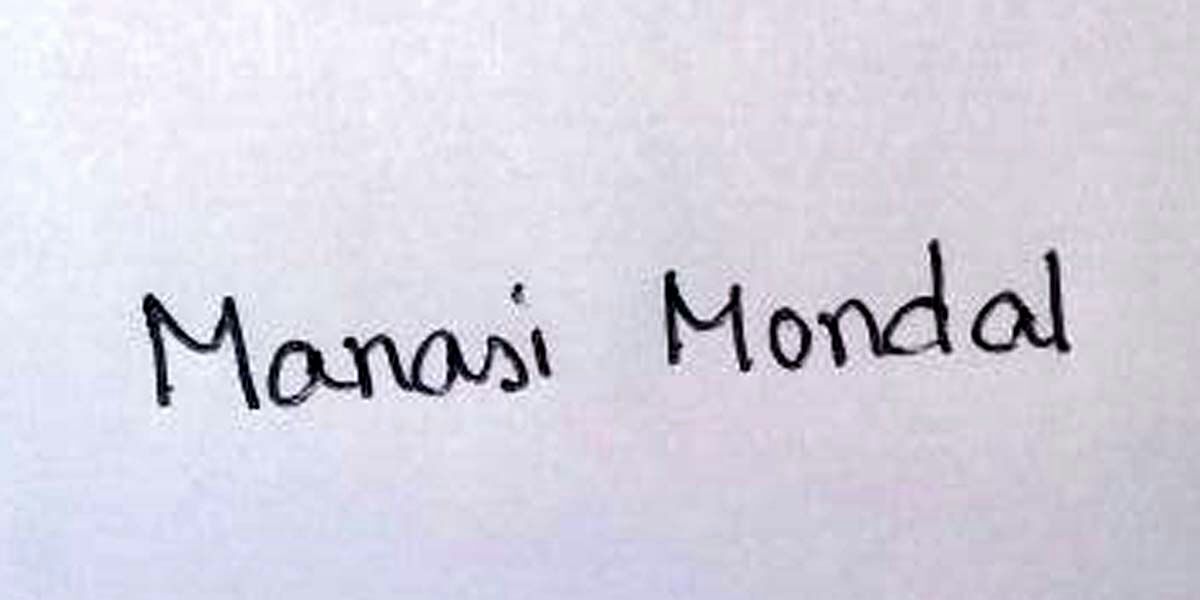 Manasi Mondal